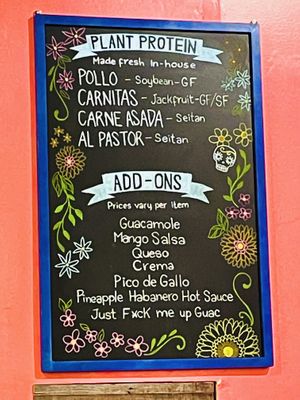 PLANT PROTEIN
Made fresh In-house
POLLO - Soybean-GF
CARNITAS - Jackfruit-GF/SF
CARNE ASADA - Seitan
AL PASTOR - Seitan
ADD-ONS
Prices vary per Item
Guacamole
Mango Salsa
Queso
Crema
Pico de Gallo
Pineapple Habanero Hot Sauce
Just F*ck me up Guac